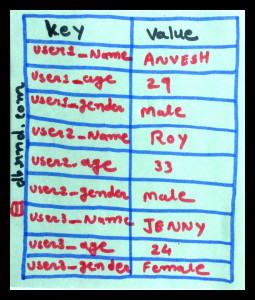 key value
user1_Name ANVESH
user1_age 29
user1_gender male
user2_Name ROY
user2_age 33
user2_gender male
user3_Name JENNY
user3_age 24
user3_gender Female
dbrnd.com